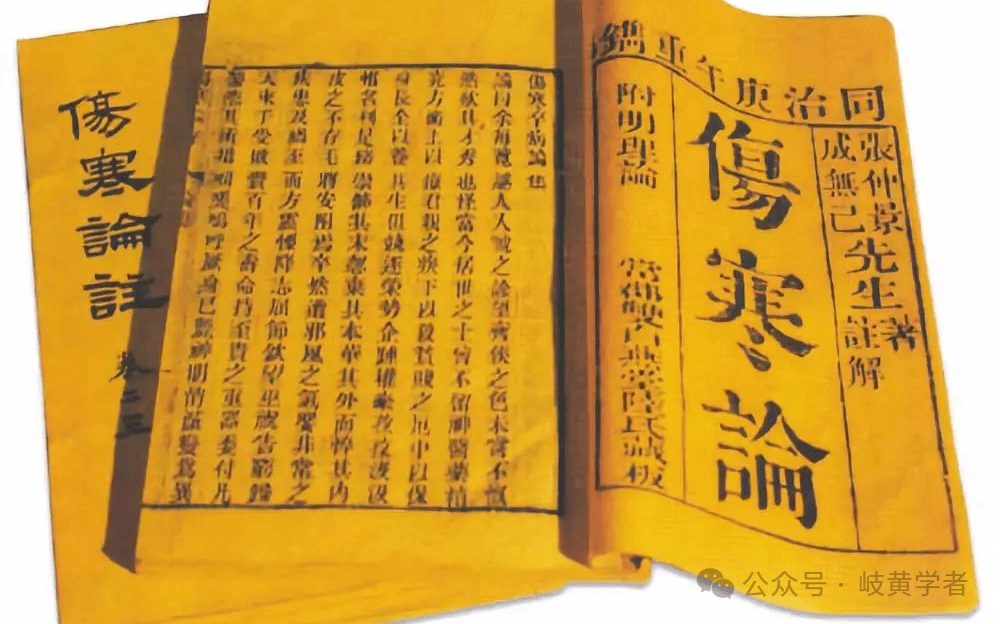 同治庚午重鐫
張仲景
成無己
先生
著
註解
傷寒論
附明理論
雙白燕堂陸氏藏板
傷寒卒病論集
論曰余每覽越人入虢之診望齊侯之色未嘗不慨
然歎其才秀也怪當今居世之士曾不留神醫藥精
究方術上以療君親之疾下以救貧賤之厄中以保
身長全以養其生但競逐榮勢企踵權豪孜孜汲汲
惟名利是務崇飾其末忽棄其本華其外而悴其內
皮之不存毛將安附焉卒然遭邪風之氣嬰非常之
疾患及禍至而方震慄降志屈節欽望巫祝告窮歸
天束手受敗賫百年之壽命持至貴之重器委付凡
醫恣其所措咄嗟嗚呼厥身已斃神明消滅變為異
傷寒論註
卷二三
公众号·岐黄学者